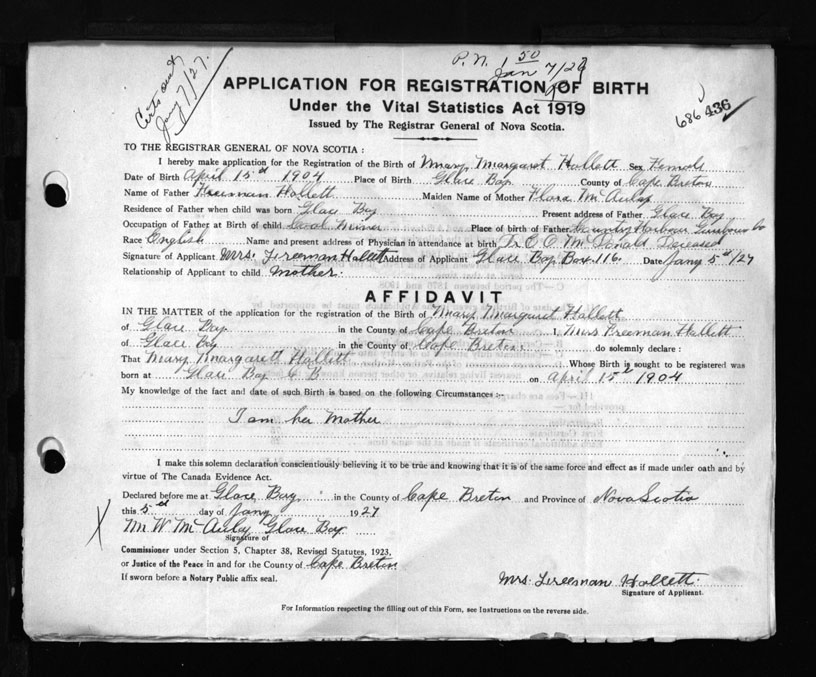 Certs out
Jany 7/27.
P.N. 1 50
Jan 7/27
686 436
APPLICATION FOR REGISTRATION OF BIRTH
Under the Vital Statistics Act 1919
Issued by The Registrar General of Nova Scotia.
TO THE REGISTRAR GENERAL OF NOVA SCOTIA :
I hereby make application for the Registration of the Birth of Mary Margaret Hallett Sex Female
Date of Birth April 15th 1904 Place of Birth Glace Bay County of Cape Breton
Name of Father Freeman Hallett Maiden Name of Mother Flora McAulay
Residence of Father when child was born Glace Bay Present address of Father Glace Bay
Occupation of Father at Birth of child Coal Miner Place of birth of Father Country Harbour Guysboro Co
Race English Name and present address of Physician in attendance at birth Dr McDonald Deceased
Signature of Applicant Mrs. Freeman Hallett Address of Applicant Glace Bay Box 116. Date Jany 5th/27
Relationship of Applicant to child Mother.
AFFIDAVIT
IN THE MATTER of the application for the registration of the Birth of Mary Margaret Hallett
of Glace Bay in the County of Cape Breton I, Mrs Freeman Hallett
of Glace Bay in the County of Cape Breton do solemnly declare :
That Mary Margaret Hallett Whose Birth is sought to be registered was
born at Glace Bay C B on April 15th 1904
My knowledge of the fact and date of such Birth is based on the following Circumstances :-
I am her Mother
I make this solemn declaration conscientiously believing it to be true and knowing that it is of the same force and effect as if made under oath and by
virtue of The Canada Evidence Act.
Declared before me at Glace Bay in the County of Cape Breton and Province of Nova Scotia
this 5th day of Jany 1927
X
M. W. McAulay Glace Bay
Signature of
Commissioner under Section 5, Chapter 38, Revised Statutes, 1923,
or Justice of the Peace in and for the County of Cape Breton
If sworn before a Notary Public affix seal.
Mrs. Freeman Hallett.
Signature of Applicant.
For Information respecting the filling out of this Form, see Instructions on the reverse side.